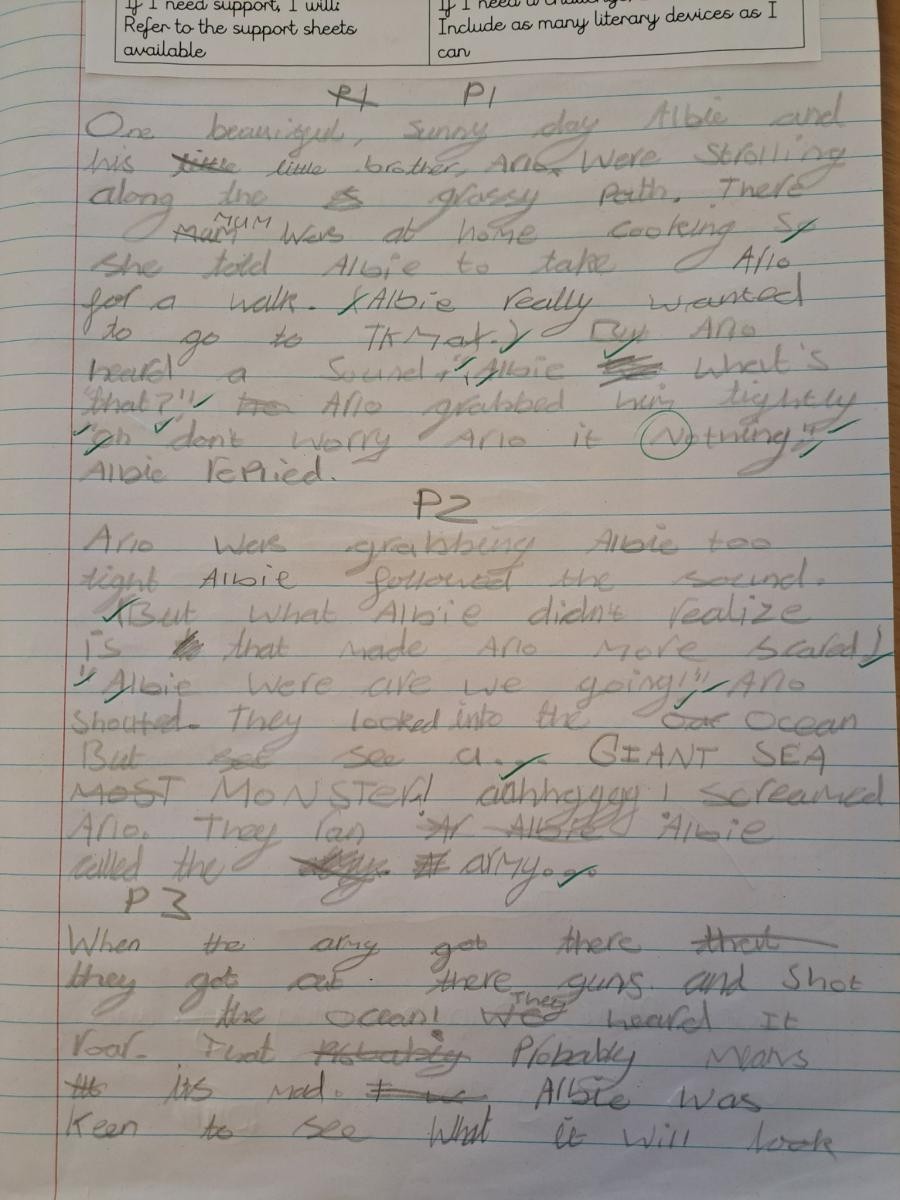 If I need support, I will:
Refer to the support sheets
available
If I need a challenge,
Include as many literary devices as I
can
P1 P1
One beauiful, Sunny day Albie and
his little little brother, Arlo. Were Strolling
along the grassy Path. There
Mum MUM Was at home cooking So
She told Albie to take Arlo
for a walk. (Albie really wanted
to go to TKMax.) But Arlo
heard a Sound, "Albie What's
that?" Arlo grabbed him tightly
"oh don't worry Arlo it Nothing"
Albie replied.
P2
Arlo Was grabbing Albie too
tight Albie followed the sound.
(But What Albie didn't realize
is that made Arlo More Scared)
"Albie Were are we going!" Arlo
Shouted. They looked into the Ocean
But see see a... GIANT SEA
MOST MONSTEr! aahhgggg! Screamed
Arlo. They ran Ar Albie Albie
called the army...
P3
When the army got there that
they got out there guns. and Shot
the ocean! They heard It
roar. That Probably Probably Means
its mad. I Albie Was
Keen to see What it will look